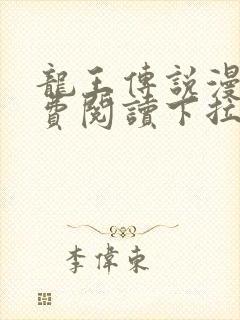 龍王傳說漫
費閱讀下拉
李偉東